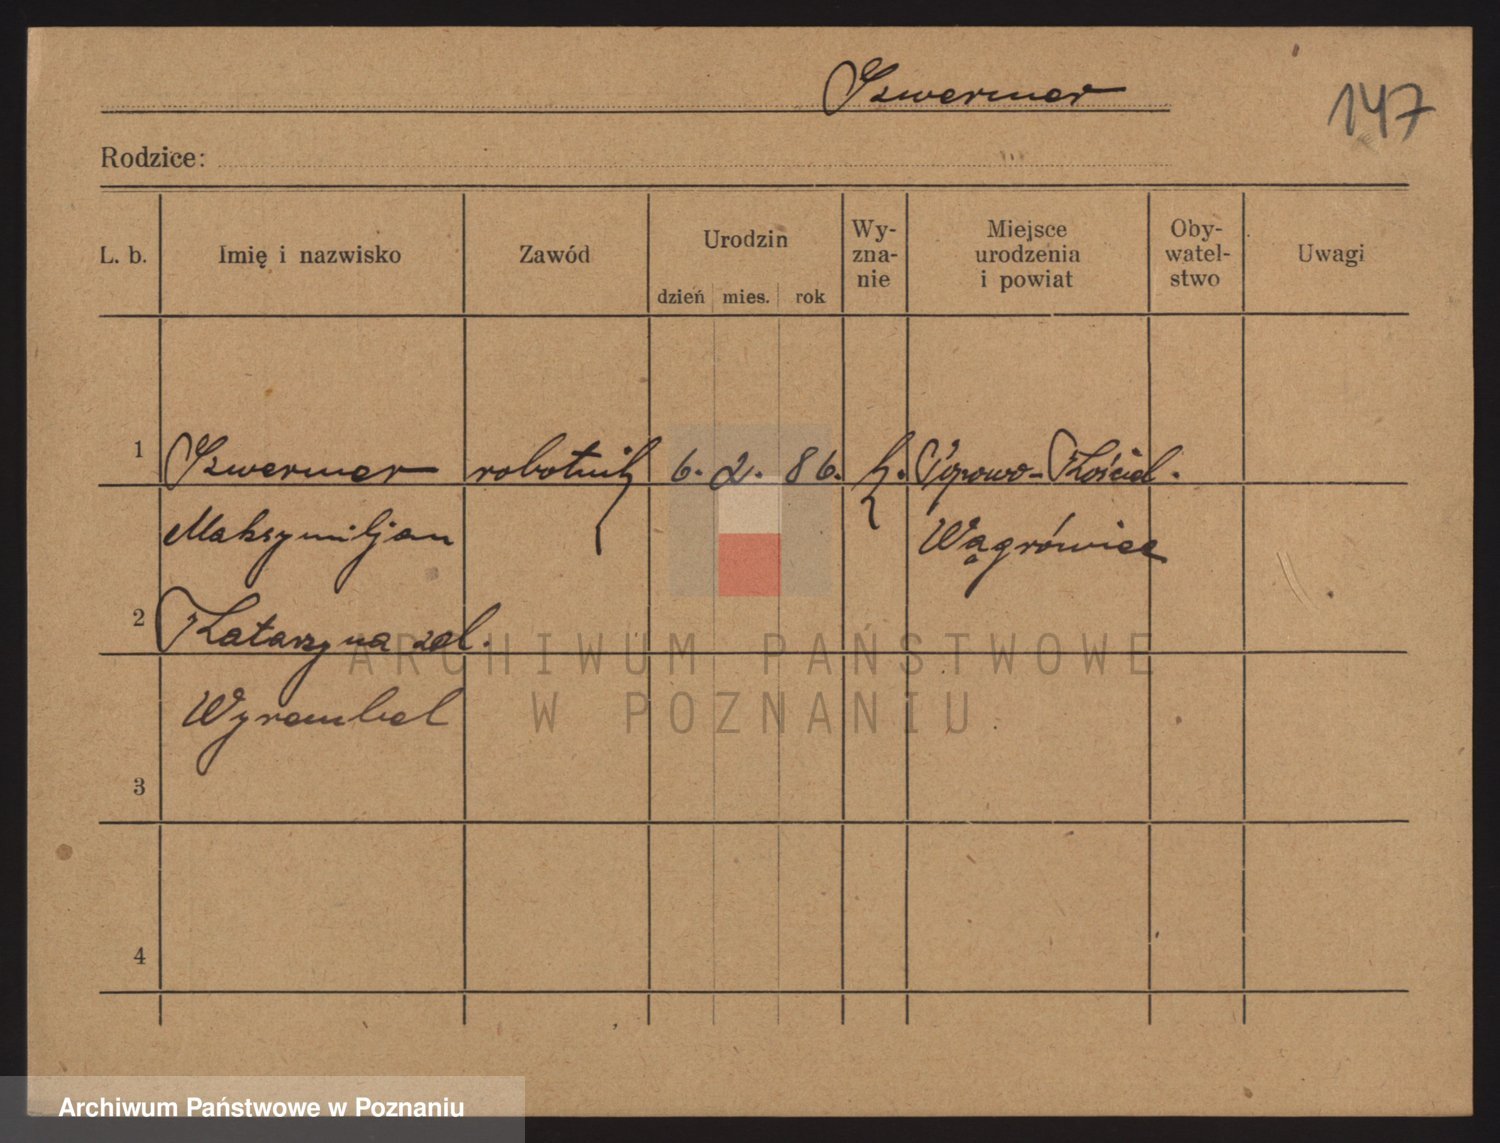 Szwermer
147
Rodzice:
L. b.
Imię i nazwisko
Zawód
Urodzin
dzień mies. rok
Wy-
zna-
nie
Miejsce
urodzenia
i powiat
Oby-
watel-
stwo
Uwagi
1 Szwermer robotnik 6. 2. 86. k. Popowo-Kościel.
Maksymiljan Wągrówiec
2 Katarzyna zd.
Wyrembel
3
4
ARCHIWUM PAŃSTWOWE
W POZNANIU
Archiwum Państwowe w Poznaniu